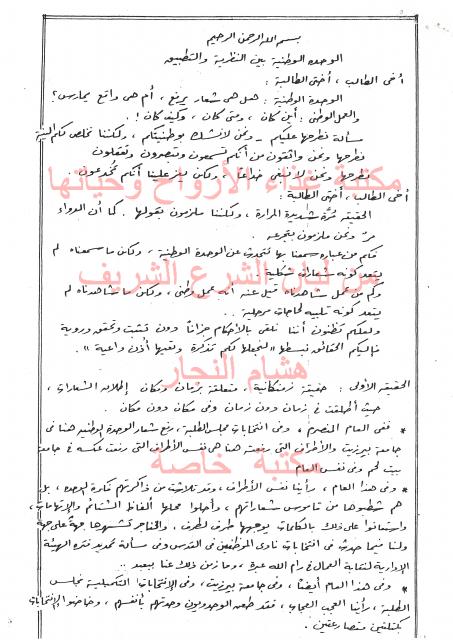 بسم الله الرحمن الرحيم
الوحدة الوطنية بين النظرية والتطبيق
أخي الطالب ، أختي الطالبة :
الوحدة الوطنية : هل هي شعار يرفع ، أم هي واقع يمارس ؟
والعمل الوطني : أين كان ، ومتى كان ، وكيف كان !
مسألة نطرحها عليكم - ونحن لا نشك بوطنيتكم ، ولكننا نخلص لكم النية
نطرحها ونحن واثقون من أنكم تسمعون وتبصرون وتعقلون
نطرحها ونحن لا نبغي خداعاً ، ولكن يعز علينا أنكم تخدعون .
مكتبة غذاء الأرواح وحياتها
أخي الطالب ، أختي الطالبة :
الحقيقة مرّة شديدة المرارة ، ولكننا ملزمون بقولها . كما أن الدواء
مرّ ونحن ملزمون بتجرعه .
فكم من عبارة سمعنا بها تتحدث عن الوحدة الوطنية ، وكان ما سمعناه لم
يتعد كونه شعارات شكلية .
من لبان الشرع الشريف
وكم من عمل شاهدناه قيل عنه أنه عمل وطني ، وكان ما شاهدناه لم
يتعد كونه تلبية لحاجات مرحلية .
ولعلكم تظنون أننا نلقي بالأحكام جزافاً دون تثبت وتحقق وروية
فإليكم الحقائق نبسطها « لنجعلها لكم تذكرة وتعيها أذن واعية » .
هشام النجار
الحقيقة الأولى : حقيقة زمنكانية . متعلقة بزمان ومكان إطلاق الشعارات ،
حيث أطلقت في زمان دون زمان وفي مكان دون مكان .
* ففي العام المنصرم ، وفي انتخابات مجلس الطلبة ، رفع شعار الوحدة الوطنية هنا في
جامعة بيرزيت والأطراف التي رفعته هنا هي نفس الأطراف التي رفعت عكسه في جامعة
بيت لحم وفي نفس العام
مكتبة خاصة
* وفي هذا العام ، رأينا نفس الأطراف ، وقد تلاشت من ذاكرتهم فكرة الوحدة ، بل
هم شطبوها من قاموس شعاراتهم ، وأحلوا محلها ألفاظ الشتائم والإتهامات ،
واستعاضوا على ذلك بالكلمات يوجهها طرف لطرف ، والخناجر تشهرها جهة على جهة
ولنا فيما حدث في انتخابات نادي الموظفين في القدس وفي مسألة تمديد فترة الهيئة
الإدارية لنقابة العمال في رام الله عبرة ، وما زمن ذلك عنا ببعيد ..
* وفي هذا العام أيضاً ، وفي جامعة بيرزيت ، وفي الإنتخابات التكميلية لمجلس
الطلبة ، رأينا العجب العجاب ، فقد طعن الوحدويون وحدتهم بأنفسهم ، وخاضوا الإنتخابات
بكتلتين متصارعتين .